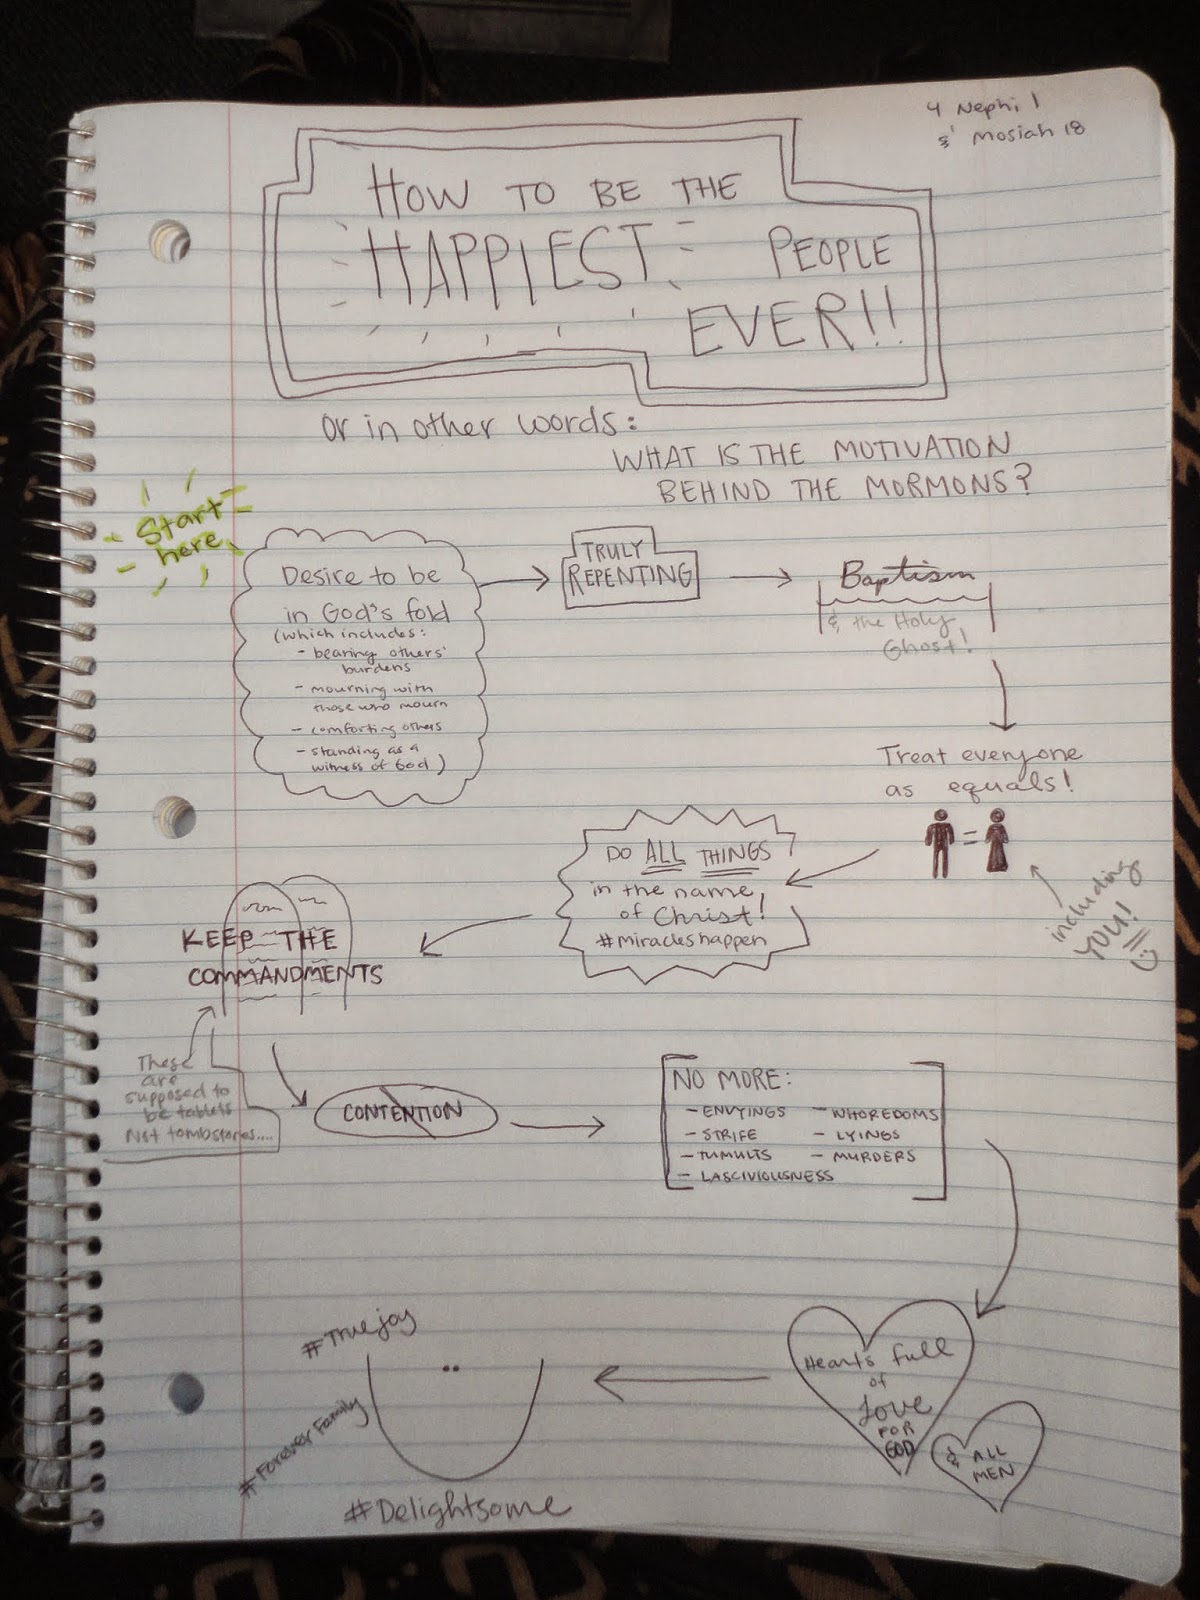 4 Nephi 1
& Mosiah 18
HOW TO BE THE
HAPPIEST PEOPLE
EVER!!
Or in other words:
WHAT IS THE MOTIVATION
BEHIND THE MORMONS?
Start
here
Desire to be
in God's fold
(which includes:
- bearing others'
burdens
- mourning with
those who mourn
- comforting others
- standing as a
witness of God)
TRULY
REPENTING
Baptism
& the Holy
Ghost!
Treat everyone
as equals!
=
including
YOU!
DO ALL THINGS
in the name
of Christ!
#miracleshappen
KEEP THE
COMMANDMENTS
These
are
supposed to
be tablets
Not tombstones....
CONTENTION
NO MORE:
- ENVYINGS - WHOREDOMS
- STRIFE - LYINGS
- TUMULTS - MURDERS
- LASCIVIOUSNESS
Hearts full
of
Love
FOR
GOD
& ALL
MEN
#Truejoy
#ForeverFamily
#Delightsome